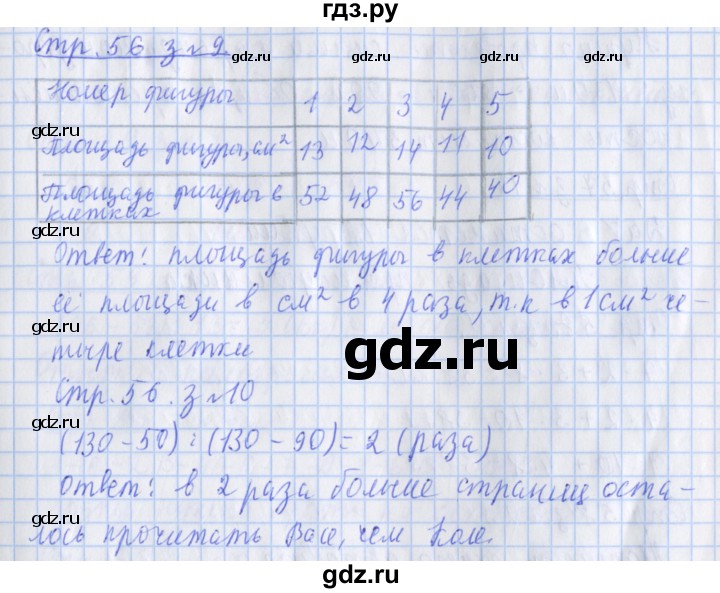 гдз.ру
Стр. 56 з №9.
Номер фигуры 1 2 3 4 5
Площадь фигуры, см² 13 12 14 11 10
Площадь фигуры в клетках 52 48 56 44 40
Ответ: площадь фигуры в клетках больше
её площади в см² в 4 раза, т.к в 1 см² че-
тыре клетки
Стр. 56. з №10
(130-50) : (130-90) = 2 (раза)
Ответ: в 2 раза больше страниц оста-
лось прочитать Васе, чем Коле.
gdz.ru
gdz.ru
gdz.ru
gdz.ru
gdz.ru
gdz.ru
gdz.ru
gdz.ru
gdz.ru
gdz.ru
gdz.ru